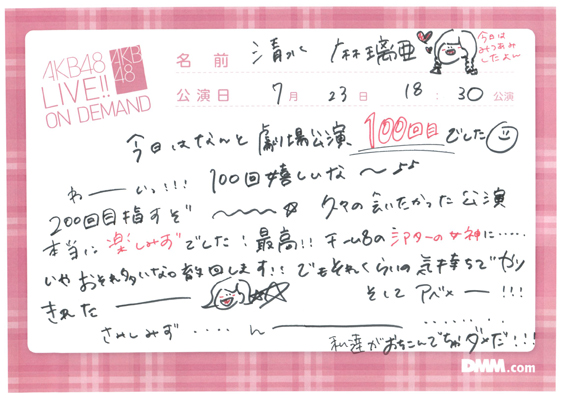 AKB48
LIVE!!
ON DEMAND
AKB
48
名前 清水 麻璃亜
今日は
みつあみ
したよん
公演日 7月 23日 18:30 公演
今日はなんと劇場公演、100回目でした
わーいっ!!! 100回嬉しいな〜♪♪
200回目指すぞ〜〜〜☆ 久々の会いたかった公演
本当に楽しみずでした!最高!! チームBのシアターの女神に……
いやおそれ多いな。撤回します!! でもそれくらいの気持ちでやり
きれたーーー そしてアベメー!!!
さみしみず…. んーーー ……..
私達がおちこんでちゃダメだ!!!
DMM.com